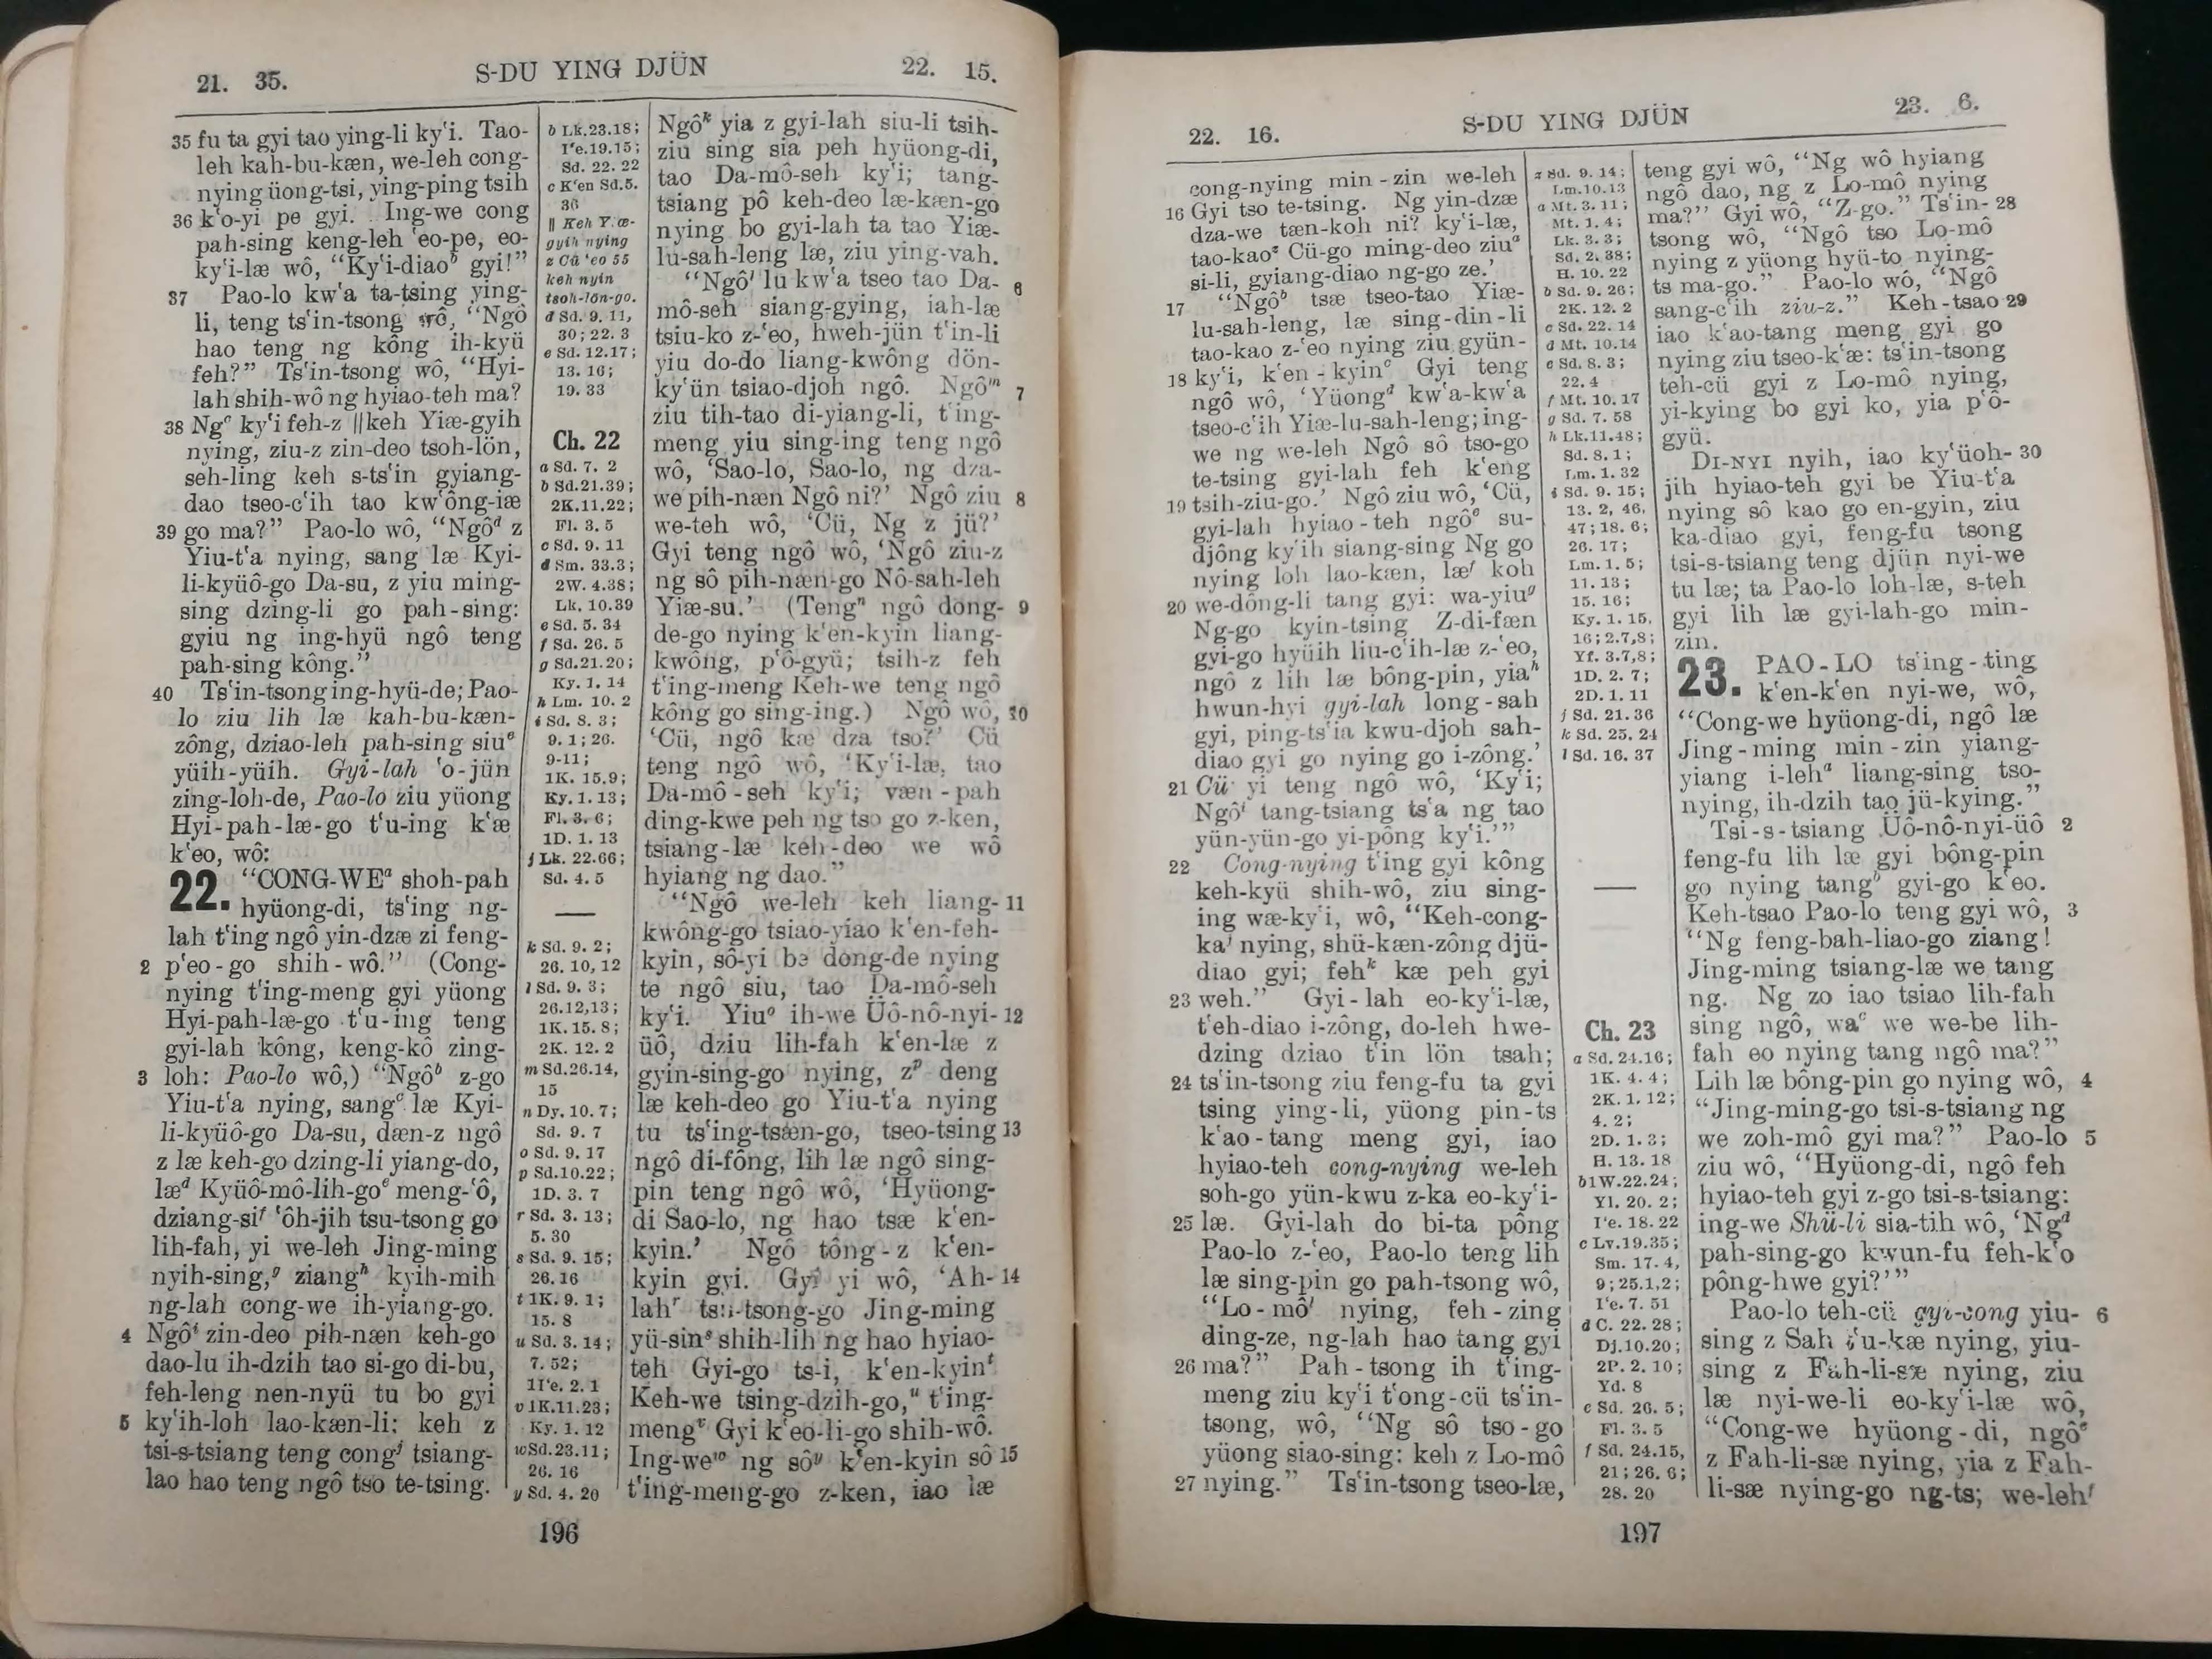 21. 35.
S-DU YING DJÜN
22. 15.
35 fu ta gyi tao ying-li ky‘i. Tao-
leh kah-bu-kæn, we-leh cong-
nying üong-tsi, ying-ping tsih
36 k‘o-yi pe gyi. Ing-we cong
pah-sing keng-leh ‘eo-pe, eo-
ky‘i-læ wô, “Ky‘i-diaoᵇ gyi!”
37 Pao-lo kw‘a ta-tsing ying-
li, teng ts‘in-tsong wô, “Ngô
hao teng ng kông ih-kyü
feh?” Ts‘in-tsong wô, “Hyi-
lah shih-wô ng hyiao-teh ma?
38 Ngᶜ ky‘i feh-z ||keh Yiæ-gyih
nying, ziu-z zin-deo tsoh-lön,
seh-ling keh s-ts‘in gyiang-
dao tseo-c‘ih tao kw‘ông-iæ
39 go ma?” Pao-lo wô, “Ngôᵈ z
Yiu-t‘a nying, sang læ Kyi-
li-kyüô-go Da-su, z yiu ming-
sing dzing-li go pah-sing:
gyiu ng ing-hyü ngô teng
pah-sing kông.”
40 Ts‘in-tsong ing-hyü-de; Pao-
lo ziu lih læ kah-bu-kæn-
zông, dziao-leh pah-sing siuᵉ
yüih-yüih. Gyi-lah ‘o-jün
zing-loh-de, Pao-lo ziu yüong
Hyi-pah-læ-go t‘u-ing k‘æ
k‘eo, wô:
22. “CONG-WEᵃ shoh-pah
hyüong-di, ts‘ing ng-
lah t‘ing ngô yin-dzæ zi feng-
2 p‘eo-go shih-wô.” (Cong-
nying t‘ing-meng gyi yüong
Hyi-pah-læ-go t‘u-ing teng
gyi-lah kông, keng-kô zing-
3 loh: Pao-lo wô,) “Ngôᵇ z-go
Yiu-t‘a nying, sangᶜ læ Kyi-
li-kyüô-go Da-su, dæn-z ngô
z læ keh-go dzing-li yiang-do,
læᵈ Kyüô-mô-lih-goᵉ meng-‘ô,
dziang-siᶠ ‘ôh-jih tsu-tsong go
lih-fah, yi we-leh Jing-ming
nyih-sing,ᵍ ziangʰ kyih-mih
ng-lah cong-we ih-yiang-go.
4 Ngôⁱ zin-deo pih-næn keh-go
dao-lu ih-dzih tao si-go di-bu,
feh-leng nen-nyü tu bo gyi
5 ky‘ih-loh lao-kæn-li: keh z
tsi-s-tsiang teng congʲ tsiang-
lao hao teng ngô tso te-tsing.
b Lk.23.18;
I‘e.19.15;
Sd. 22. 22
c K‘en Sd.5.
36
|| Keh Y.æ-
gyih nying
z Cü ‘eo 55
keh nyin
tsoh-lön-go.
d Sd. 9. 11,
30; 22. 3
e Sd. 12.17;
13. 16;
19. 33
Ch. 22
a Sd. 7. 2
b Sd.21.39;
2K.11.22;
Fl. 3. 5
c Sd. 9. 11
d Sm. 33.3;
2W. 4.38;
Lk. 10.39
e Sd. 5. 34
f Sd. 26. 5
g Sd.21.20;
Ky. 1. 14
h Lm. 10. 2
i Sd. 8. 3;
9. 1; 26.
9-11;
1K. 15.9;
Ky. 1. 13;
Fl. 3. 6;
1D. 1. 13
j Lk. 22.66;
Sd. 4. 5
k Sd. 9. 2;
26. 10, 12
l Sd. 9. 3;
26.12,13;
1K. 15. 8;
2K. 12. 2
m Sd.26.14,
15
n Dy. 10. 7;
Sd. 9. 7
o Sd. 9. 17
p Sd.10.22;
1D. 3. 7
r Sd. 3. 13;
5. 30
s Sd. 9. 15;
26. 16
t 1K. 9. 1;
15. 8
u Sd. 3. 14;
7. 52;
1I‘e. 2. 1
v 1K.11.23;
Ky. 1. 12
w Sd.23.11;
26. 16
y Sd. 4. 20
Ngôᵏ yia z gyi-lah siu-li tsih-
ziu sing sia peh hyüong-di,
tao Da-mô-seh ky‘i; tang-
tsiang pô keh-deo læ-kæn-go
nying bo gyi-lah ta tao Yiæ-
lu-sah-leng læ, ziu ying-vah.
“Ngôˡ lu kw‘a tseo tao Da- 6
mô-seh siang-gying, iah-læ
tsiu-ko z-‘eo, hweh-jün t‘in-li
yiu do-do liang-kwông dön-
ky‘ün tsiao-djoh ngô. Ngôᵐ 7
ziu tih-tao di-yiang-li, t‘ing-
meng yiu sing-ing teng ngô
wô, ‘Sao-lo, Sao-lo, ng dza-
we pih-næn Ngô ni?’ Ngô ziu 8
we-teh wô, ‘Cü, Ng z jü?’
Gyi teng ngô wô, ‘Ngô ziu-z
ng sô pih-næn-go Nô-sah-leh
Yiæ-su.’ (Tengⁿ ngô dong- 9
de-go nying k‘en-kyin liang-
kwông, p‘ô-gyü; tsih-z feh
t‘ing-meng Keh-we teng ngô
kông go sing-ing.) Ngô wô, 10
‘Cü, ngô kæ dza tso?’ Cü
teng ngô wô, ‘Ky‘i-læ, tao
Da-mô-seh ky‘i; væn-pah
ding-kwe peh ng tso go z-ken,
tsiang-læ keh-deo we wô
hyiang ng dao.”
“Ngô we-leh keh liang- 11
kwông-go tsiao-yiao k‘en-feh-
kyin, sô-yi be dong-de nying
te ngô siu, tao Da-mô-seh
ky‘i. Yiuᵒ ih-we Üô-nô-nyi- 12
üô, dziu lih-fah k‘en-læ z
gyin-sing-go nying, zᵖ deng
læ keh-deo go Yiu-t‘a nying
tu ts‘ing-tsæn-go, tseo-tsing 13
ngô di-fông, lih læ ngô sing-
pin teng ngô wô, ‘Hyüong-
di Sao-lo, ng hao tsæ k‘en-
kyin.’ Ngô tông-z k‘en-
kyin gyi. Gyi yi wô, ‘Ah- 14
lahʳ tsu-tsong-go Jing-ming
yü-sinˢ shih-lih ng hao hyiao-
teh Gyi-go ts-i, k‘en-kyinᵗ
Keh-we tsing-dzih-go,ᵘ t‘ing-
mengᵛ Gyi k‘eo-li-go shih-wô.
Ing-weʷ ng sôʸ k‘en-kyin sô 15
t‘ing-meng-go z-ken, iao læ
196
22. 16.
S-DU YING DJÜN
23. 6.
cong-nying min-zin we-leh
16 Gyi tso te-tsing. Ng yin-dzæ
dza-we tæn-koh ni? ky‘i-læ,
tao-kaoᶻ Cü-go ming-deo ziuᵃ
si-li, gyiang-diao ng-go ze.’
17 “Ngôᵇ tsæ tseo-tao Yiæ-
lu-sah-leng, læ sing-din-li
tao-kao z-‘eo nying ziu gyün-
18 ky‘i, k‘en-kyinᶜ Gyi teng
ngô wô, ‘Yüongᵈ kw‘a-kw‘a
tseo-c‘ih Yiæ-lu-sah-leng; ing-
we ng we-leh Ngô sô tso-go
te-tsing gyi-lah feh k‘eng
19 tsih-ziu-go.’ Ngô ziu wô, ‘Cü,
gyi-lah hyiao-teh ngôᵉ su-
djông ky‘ih siang-sing Ng go
nying loh lao-kæn, læᶠ koh
20 we-dông-li tang gyi: wa-yiuᵍ
Ng-go kyin-tsing Z-di-fæn
gyi-go hyüih liu-c‘ih-læ z-‘eo,
ngô z lih læ bông-pin, yiaʰ
hwun-hyi gyi-lah long-sah
gyi, ping-ts‘ia kwu-djoh sah-
diao gyi go nying go i-zông.’
21 Cü yi teng ngô wô, ‘Ky‘i;
Ngôⁱ tang-tsiang ts‘a ng tao
yün-yün-go yi-pông ky‘i.’”
22 Cong-nying t‘ing gyi kông
keh-kyü shih-wô, ziu sing-
ing wæ-ky‘i, wô, “Keh-cong-
kaʲ nying, shü-kæn-zông djü-
diao gyi; fehᵏ kæ peh gyi
23 weh.” Gyi-lah eo-ky‘i-læ,
t‘eh-diao i-zông, do-leh hwe-
dzing dziao t‘in lön tsah;
24 ts‘in-tsong ziu feng-fu ta gyi
tsing ying-li, yüong pin-ts
k‘ao-tang meng gyi, iao
hyiao-teh cong-nying we-leh
soh-go yün-kwu z-ka eo-ky‘i-
25 læ. Gyi-lah do bi-ta pông
Pao-lo z-‘eo, Pao-lo teng lih
læ sing-pin go pah-tsong wô,
“Lo-môˡ nying, feh-zing
ding-ze, ng-lah hao tang gyi
26 ma?” Pah-tsong ih t‘ing-
meng ziu ky‘i t‘ong-cü ts‘in-
tsong, wô, “Ng sô tso-go
yüong siao-sing: keh z Lo-mô
27 nying.” Ts‘in-tsong tseo-læ,
z Sd. 9. 14;
Lm.10.13
a Mt. 3. 11;
Mt. 1. 4;
Lk. 3. 3;
Sd. 2. 38;
H. 10. 22
b Sd. 9. 26;
2K. 12. 2
c Sd. 22. 14
d Mt. 10.14
e Sd. 8. 3;
22. 4
f Mt. 10. 17
g Sd. 7. 58
h Lk.11.48;
Sd. 8. 1;
Lm. 1. 32
i Sd. 9. 15;
13. 2, 46,
47; 18. 6;
26. 17;
Lm. 1. 5;
11. 13;
15. 16;
Ky. 1. 15,
16; 2.7,8;
Yf. 3.7,8;
1D. 2. 7;
2D. 1. 11
j Sd. 21.36
k Sd. 25. 24
l Sd. 16. 37
Ch. 23
a Sd. 24.16;
1K. 4. 4;
2K. 1. 12;
4. 2;
2D. 1. 3;
H. 13. 18
b1W.22.24;
Yl. 20. 2;
I‘e. 18. 22
c Lv.19.35;
Sm. 17. 4,
9; 25.1,2;
I‘e. 7. 51
d C. 22. 28;
Dj.10.20;
2P. 2. 10;
Yd. 8
e Sd. 26. 5;
Fl. 3. 5
f Sd. 24.15,
21; 26. 6;
28. 20
teng gyi wô, “Ng wô hyiang
ngô dao, ng z Lo-mô nying
ma?” Gyi wô, “Z-go.” Ts‘in- 28
tsong wô, “Ngô tso Lo-mô
nying z yüong hyü-to nying-
ts ma-go.” Pao-lo wô, “Ngô
sang-c‘ih ziu-z.” Keh-tsao 29
iao k‘ao-tang meng gyi go
nying ziu tseo-k‘æ: ts‘in-tsong
teh-cü gyi z Lo-mô nying,
yi-kying bo gyi ko, yia p‘ô-
gyü.
DI-NYI nyih, iao ky‘üoh- 30
jih hyiao-teh gyi be Yiu-t‘a
nying sô kao go en-gyin, ziu
ka-diao gyi, feng-fu tsong
tsi-s-tsiang teng djün nyi-we
tu læ; ta Pao-lo loh-læ, s-teh
gyi lih læ gyi-lah-go min-
zin.
23. PAO-LO ts‘ing-ting
k‘en-k‘en nyi-we, wô,
“Cong-we hyüong-di, ngô læ
Jing-ming min-zin yiang-
yiang i-lehᵃ liang-sing tso-
nying, ih-dzih tao jü-kying.”
Tsi-s-tsiang Üô-nô-nyi-üô 2
feng-fu lih læ gyi bông-pin
go nying tangᵇ gyi-go k‘eo.
Keh-tsao Pao-lo teng gyi wô, 3
“Ng feng-bah-liao-go ziang!
Jing-ming tsiang-læ we tang
ng. Ng zo iao tsiao lih-fah
sing ngô, waᶜ we we-be lih-
fah eo nying tang ngô ma?”
Lih læ bông-pin go nying wô, 4
“Jing-ming-go tsi-s-tsiang ng
we zoh-mô gyi ma?” Pao-lo 5
ziu wô, “Hyüong-di, ngô feh
hyiao-teh gyi z-go tsi-s-tsiang:
ing-we Shü-li sia-tih wô, ‘Ngᵈ
pah-sing-go kwun-fu feh-k‘o
pông-hwe gyi?’”
Pao-lo teh-cü gyi-cong yiu- 6
sing z Sah-tu-kæ nying, yiu-
sing z Fah-li-sæ nying, ziu
læ nyi-we-li eo-ky‘i-læ wô,
“Cong-we hyüong-di, ngôᵉ
z Fah-li-sæ nying, yia z Fah-
li-sæ nying-go ng-ts; we-lehᶠ
197